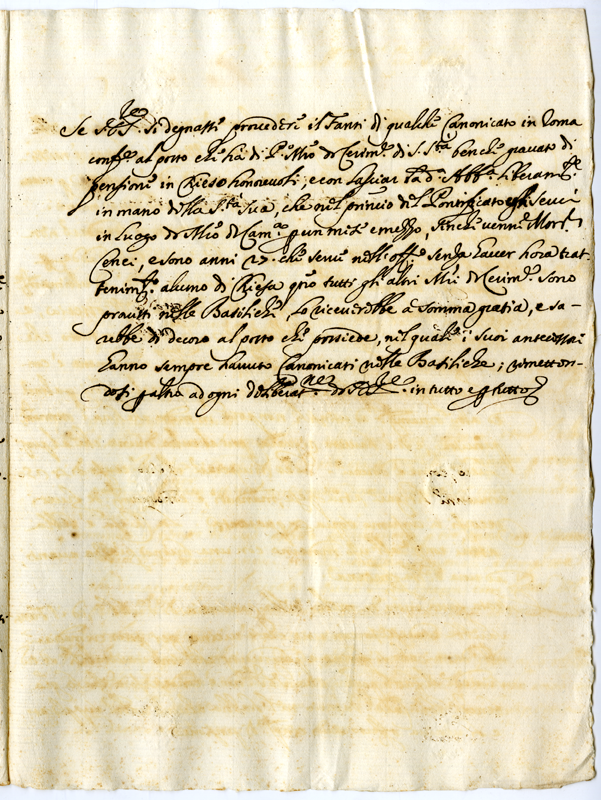 Se S. S.re si degnasse provedere il Fanti di qualche Canonicato in Roma
conf.e al posto che hà di P.o M.ro di Cerim.e di S. S.tà benche gravato di
pensione in Chiese honorevoli, e con lasciar la d.a Abb.a liberam.te
in mano della S.tà Sua, che nel princio del Pontificato egli servì
in luogo di M.ro di Cam.a p un mese e mezzo, finche venne Mons.r
Cenci, e sono anni 27. che serve nell'off.o senza haver hora trat
tenim.to alcuno di Chiesa q.do tutti gli altri M.ri di Cerim.e sono
proviste nelle Basiliche, lo riceverebbe a somma gratia, e sa-
rebbe di decoro al posto che possiede, nel quale i suoi antecessori
hanno sempre havuto Canonicati nelle Basiliche; rimetten-
dosi p altro ad ogni deliberat.ne di in tutto e p tutto